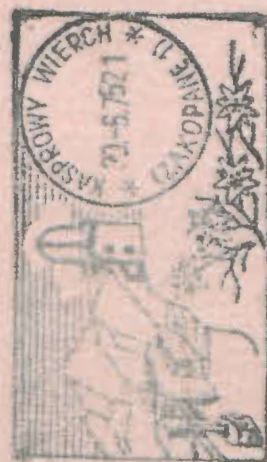 KASPROWY WIERCH * (ZAKOPANE 1) *
20.-6.75 21